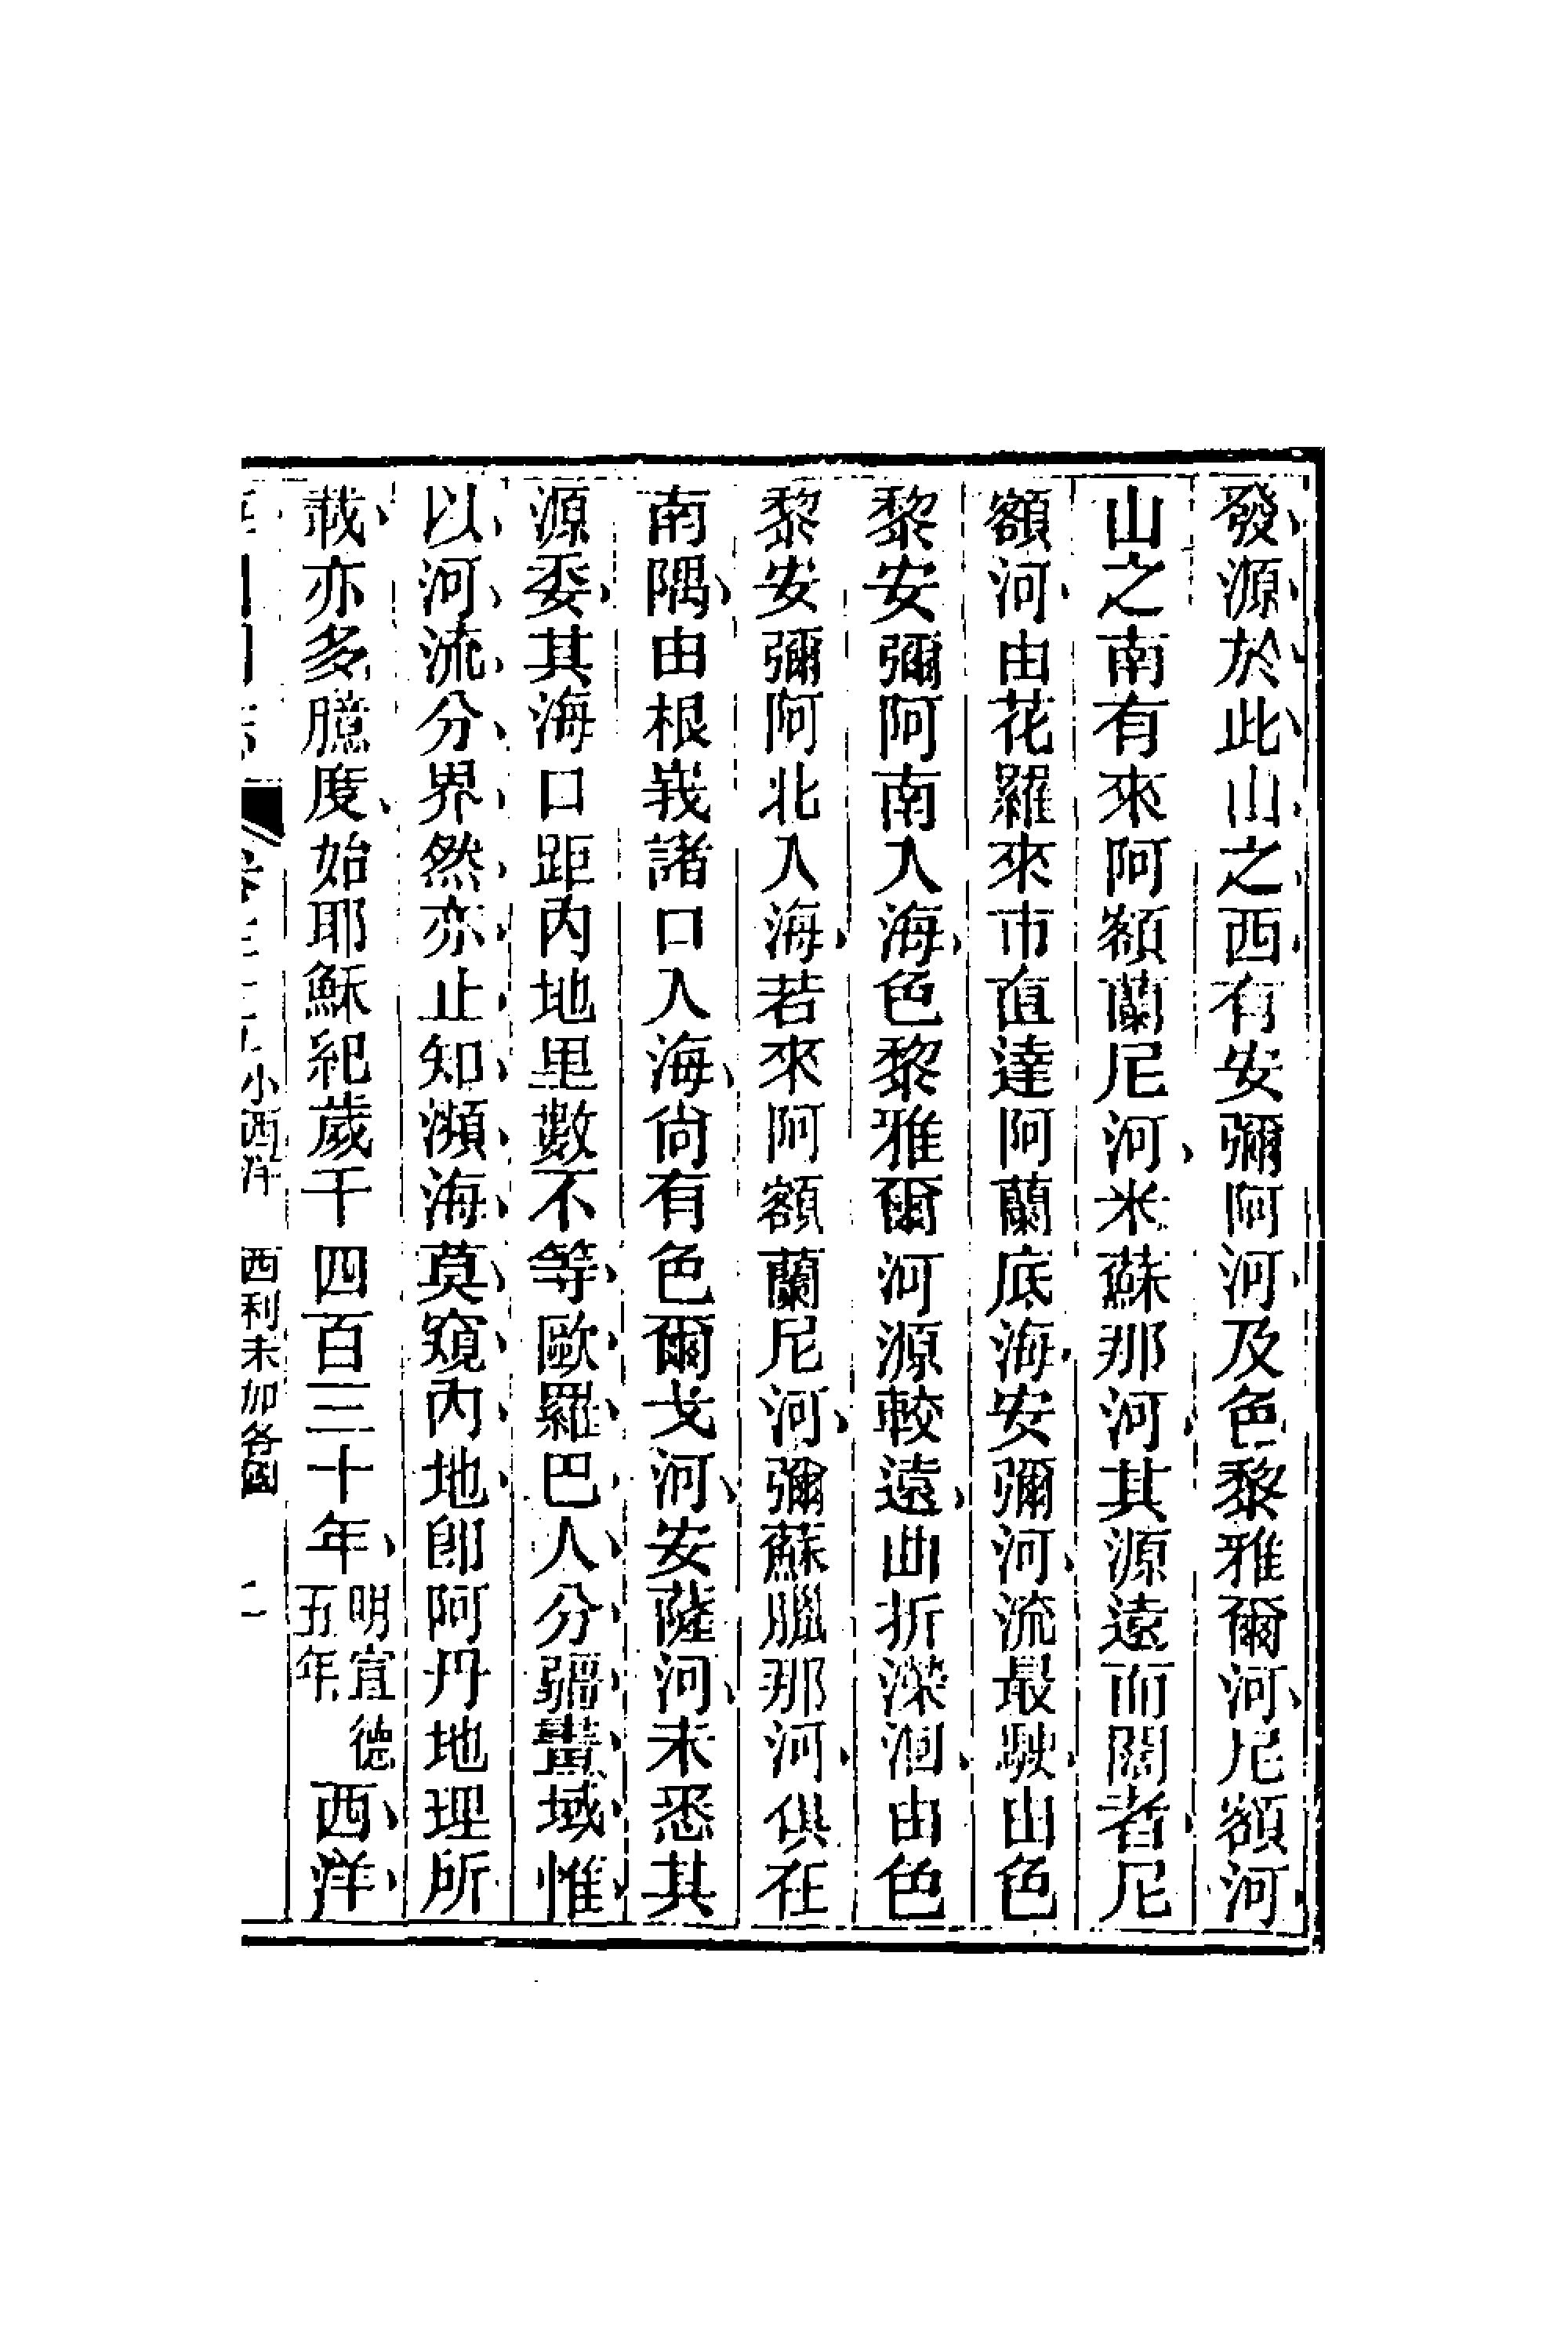 發源於此山之西有安彌阿河及色黎雅爾河尼額河
山之南有來阿額蘭尼河米蘇那河其源遠而闊者尼
額河由花羅來市直達阿蘭底海安彌河流最駛由色
黎安彌阿南入海色黎雅爾河源較遠曲折濚洄由色
黎安彌阿北入海若來阿額蘭尼河彌蘇臘那河俱在
南隅由根峩諸口入海尙有色爾戈河安薩河未悉其
源委其海口距內地里數不等歐羅巴人分疆畫域惟
以河流分界然亦止知瀕海莫窺內地卽阿丹地理所
載亦多臆度始耶穌紀歲千四百三十年明宣德五年西洋
小西洋 西利未加各國